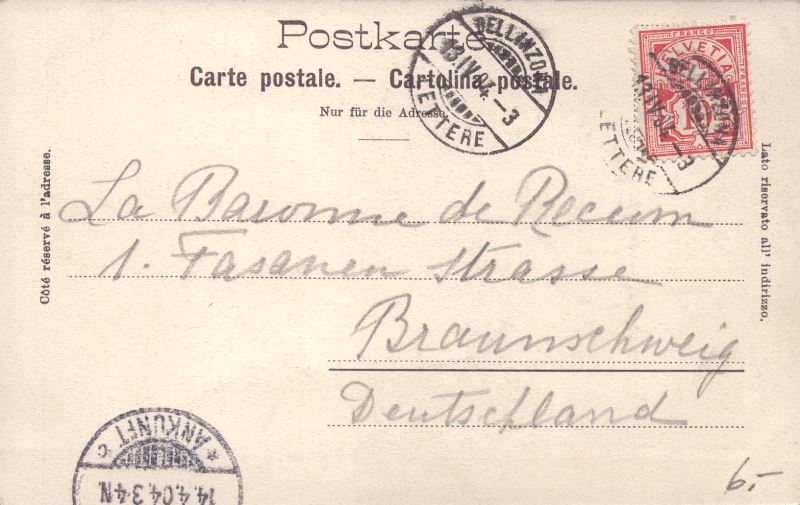 Postkarte
Carte postale. — Cartolina postale.
Nur für die Adresse
BELLINZONA
13.IV.04.-3
LETTERE
FRANCO
HELVETIA
FRANCO
BELLINZONA
13.IV.04.-3
LETTERE
Côté réservé à l'adresse.
Lato riservato all' indirizzo.
La Baronne de Recum
1. Fasanen Strasse
Braunschweig
Deutschland
* ANKUNFT c *
14.4.04.3-4N
6.-